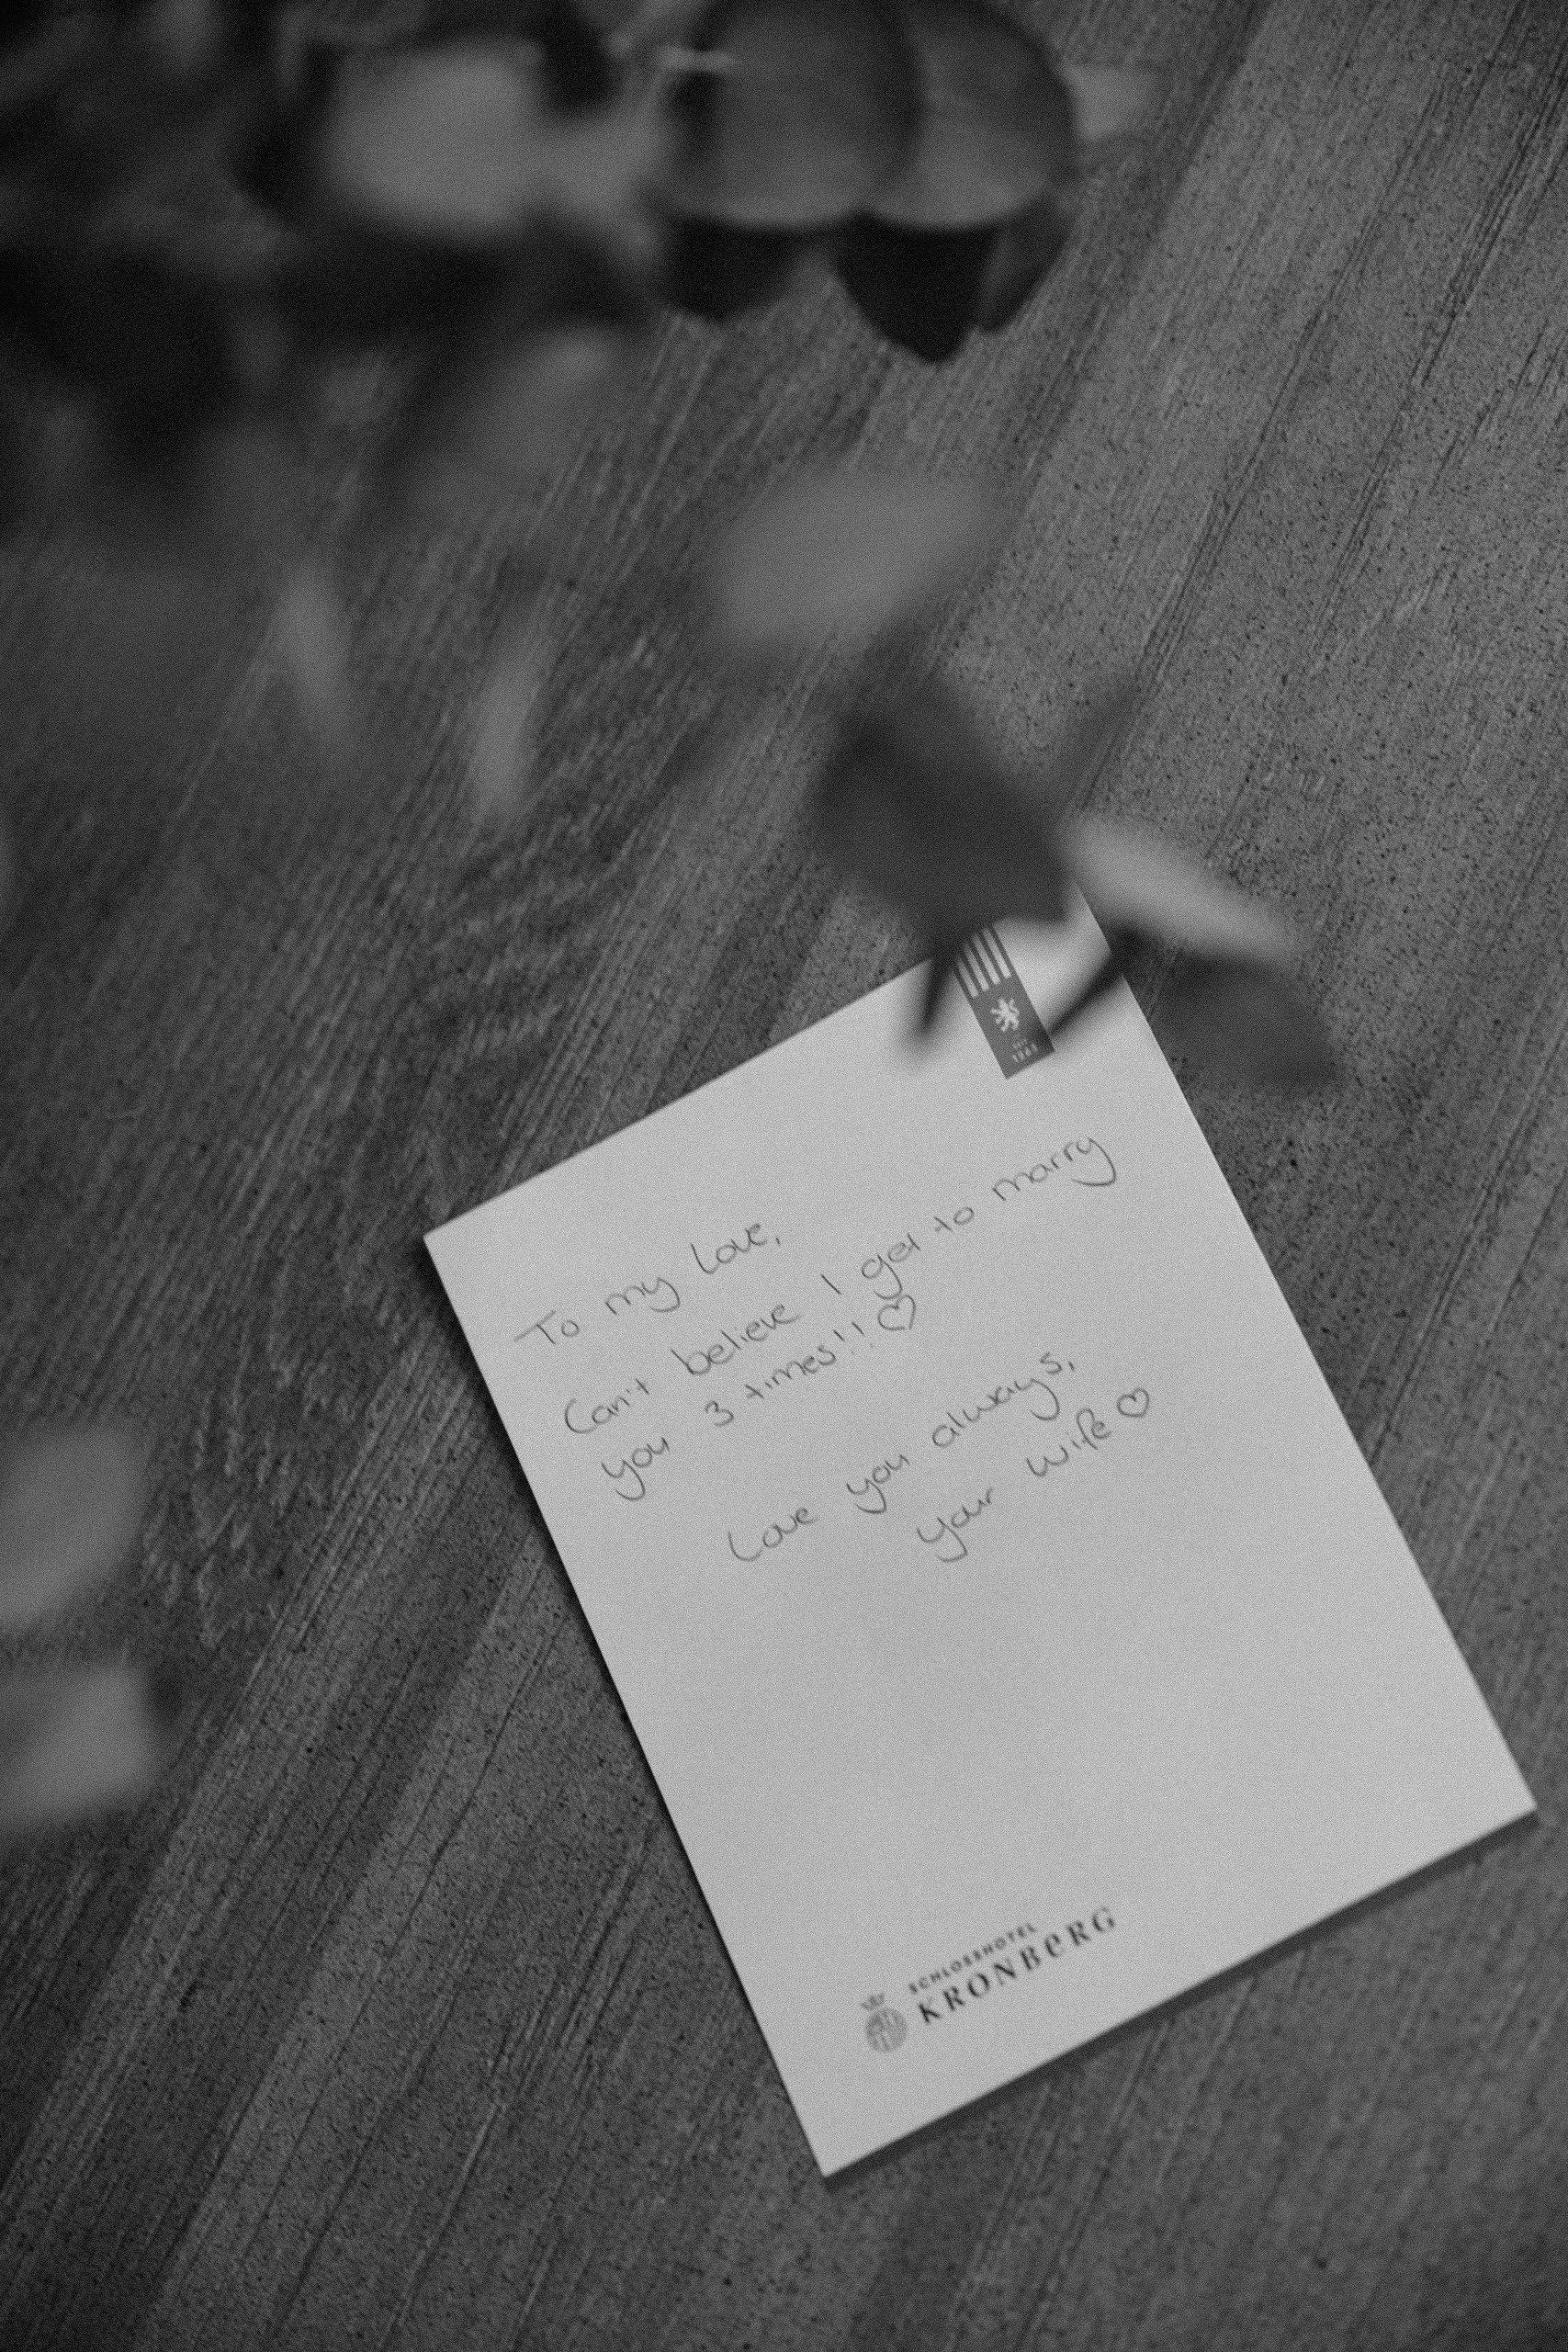 To my love,
Can't believe I get to marry
you 3 times!! ♡
Love you always,
your wife ♡
SCHLOSSHOTEL
KRONBERG